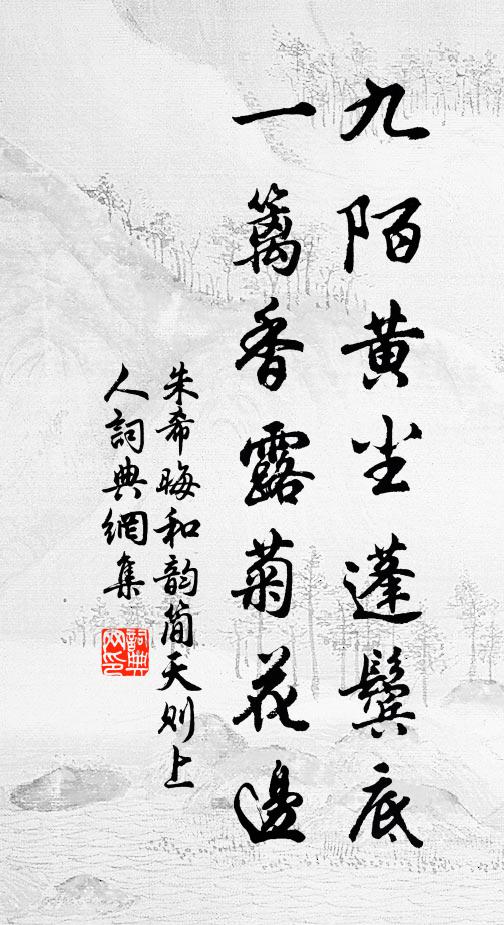 九陌黄尘蓬鬓底
一篱香露菊花邊
朱希晦和韵简天则上
人詞典網集
詞典
网印